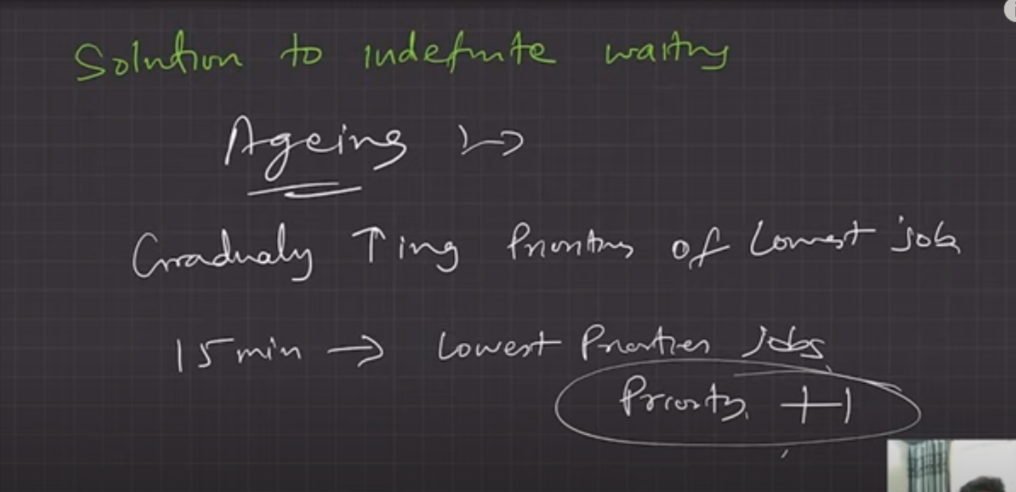 Solution to indefinite waiting
Ageing ↦
Gradualy ↑ing Priority of Lowest job
15 min → Lowest Priorities jobs
Priority +1